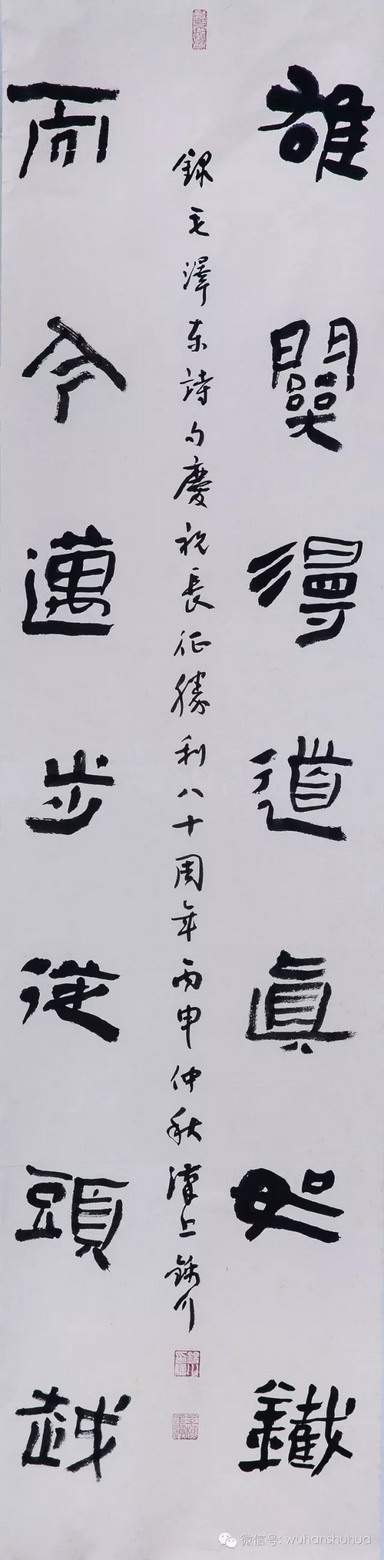 雄關漫道眞如鐵
錄毛澤東詩句慶祝長征勝利八十周年丙申仲秋漢上
而今邁步從頭越
微信号: wuhanshuhua